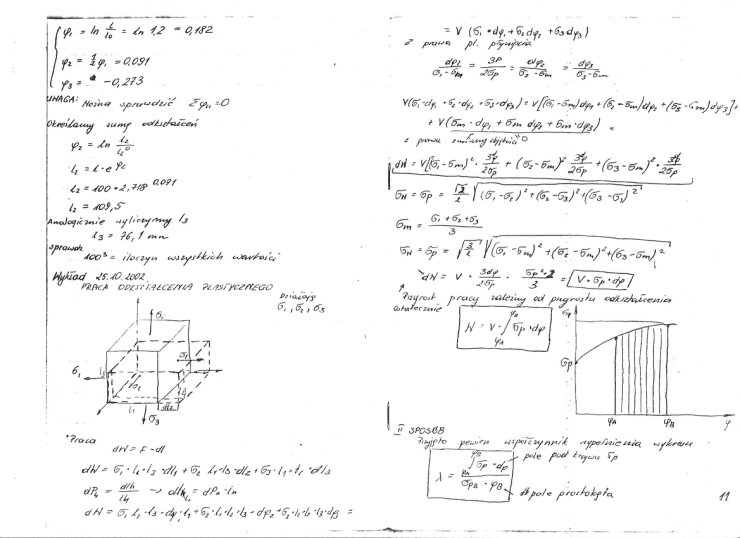 φ₁ = ln l/l₀ = ln 1,2 = 0,182
φ₂ = ½ φ₁ = 0,091
φ₃ = -0,273
UWAGA: Można sprawdzić Σφn = 0
Określamy sumę odkształceń
φ₂ = ln l₂/l₂⁰
l₂ = l · e^φ₂
l₂ = 100 · 2,718^0,091
l₂ = 109,5
Analogicznie wyliczymy l₃
l₃ = 76,1 mm
sprawdz.
100³ = iloczyn wszystkich wartości
Wykład 25.10.2002
PRACA ODKSZTAŁCENIA PLASTYCZNEGO
Działają
σ₁, σ₂, σ₃
σ₁
σ₁
σ₁
σ₂
l₁
dl₂
σ₃
Praca
dW = F · dl
dW = σ₁ · l₂ · l₃ · dl₁ + σ₂ · l₁ · l₃ · dl₂ + σ₃ · l₁ · l₂ · dl₃
dφₙ = dlₙ/lₙ → dlₙ = dφₙ · lₙ
dW = σ₁ · l₂ · l₃ · dφ₁ · l₁ + σ₂ · l₁ · l₂ · l₃ · dφ₂ + σ₃ · l₁ · l₂ · l₃ · dφ₃ =
= V (σ₁ · dφ₁ + σ₂ dφ₂ + σ₃ dφ₃)
z prawa pl. płynięcia
dφ₁/(σ₁ - σm) = 3dφ/2σp = dφ₂/(σ₂ - σm) = dφ₃/(σ₃ - σm)
V(σ₁ · dφ₁ + σ₂ · dφ₂ + σ₃ · dφ₃) = V[(σ₁ - σm) dφ₁ + (σ₂ - σm) dφ₂ + (σ₃ - σm) dφ₃] +
+ V(σm · dφ₁ + σm dφ₂ + σm · dφ₃) =
z prawa objętości = 0
dW = V[(σ₁ - σm)² · 3dφ/2σp + (σ₂ - σm)² · 3dφ/2σp + (σ₃ - σm)² · 3dφ/2σp
σH = σp = √2/2 √((σ₁ - σ₂)² + (σ₂ - σ₃)² + (σ₃ - σ₁)²)
σm = (σ₁ + σ₂ + σ₃)/3
σH = σp = √(3/2) √((σ₁ - σm)² + (σ₂ - σm)² + (σ₃ - σm)²)
dW = V · 3dφ/2σp · σp² · 2/3 = V · σp · dφ
Przyrost pracy zależny od przyrostu odkształcenia
ostatecznie
W = V · ∫ σp · dφ
φB
φA
σp
φA
φB
φ
II SPOSÓB
Przyjęto pewien współczynnik wypełnienia wykresu
λ = ∫ σp · dφ / (σpB · φB)
pole pod krzywą σp
pole prostokąta
11